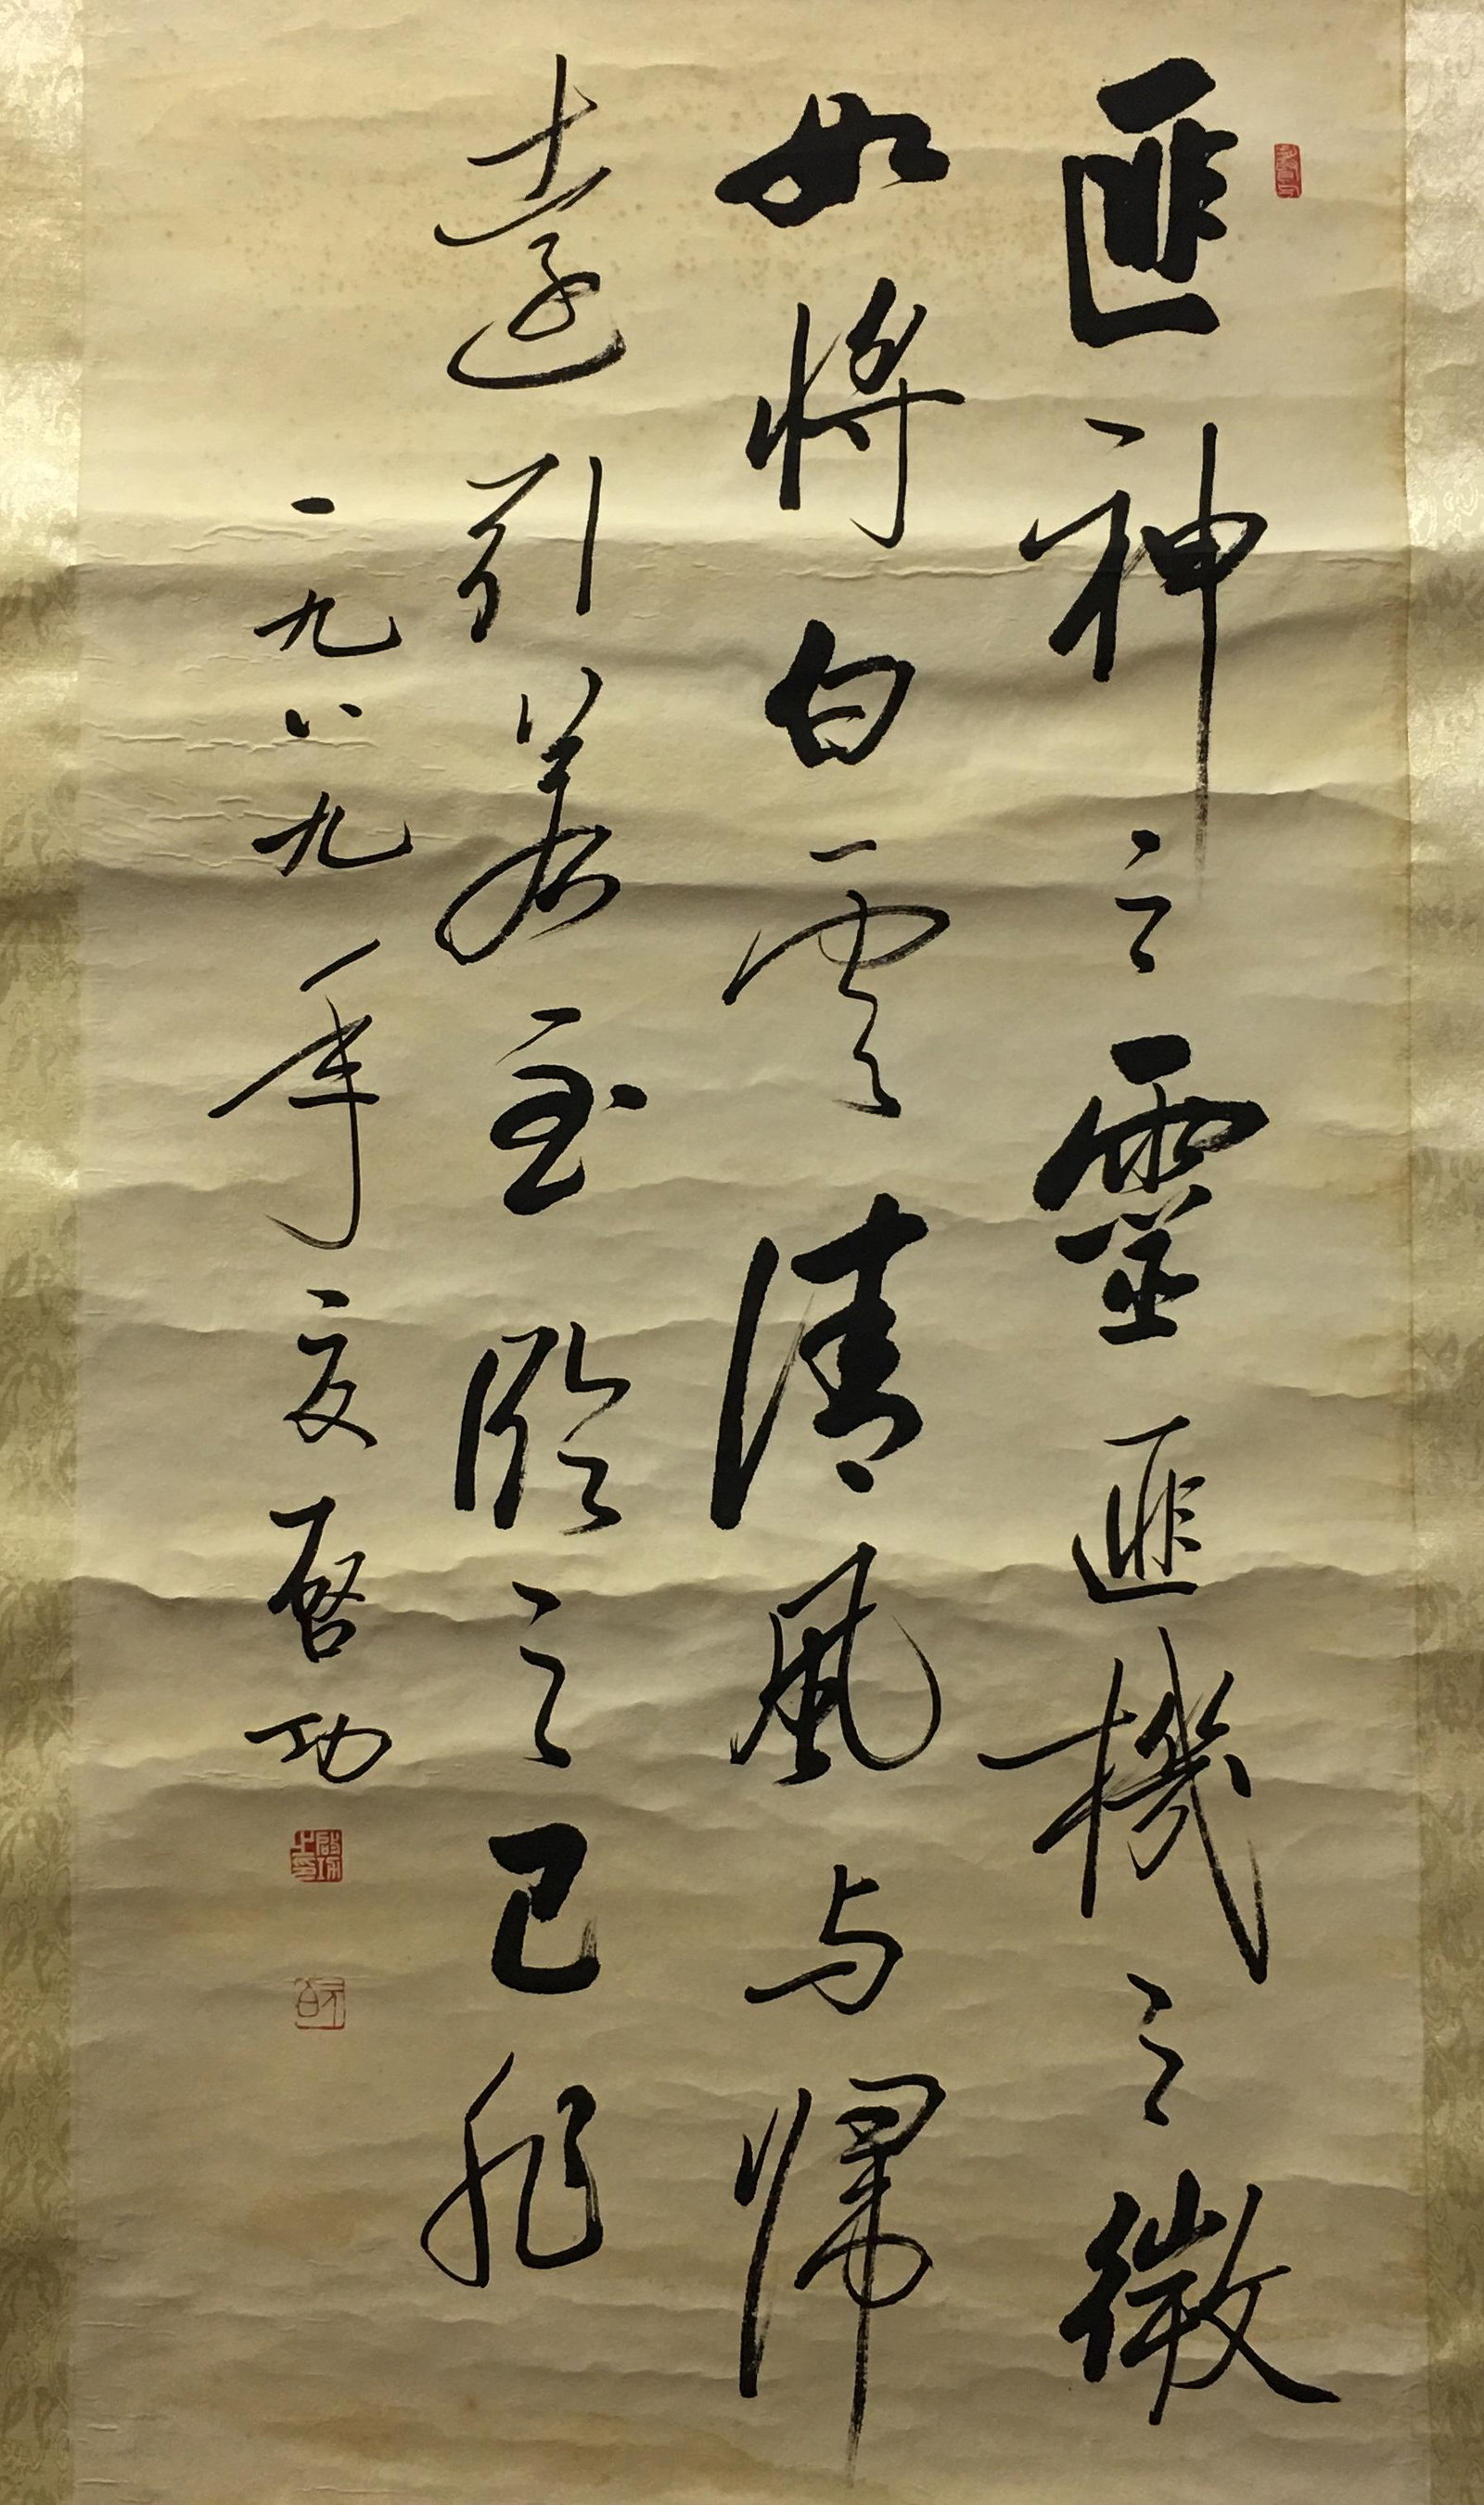 匪神之靈匪機之微
如將白雲清風与歸
遠引若至臨之已非
一九八九年夏啓功
啟功之印